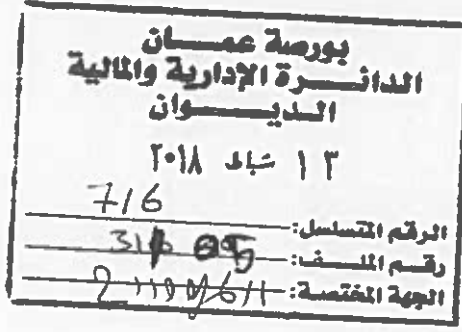 بورصة عمـــان
الدائـــرة الإدارية والمالية
الديـــوان
١٣ شباط ٢٠١٨
الرقم المتسلسل: 716
رقم الملف:
الجهة المختصة: